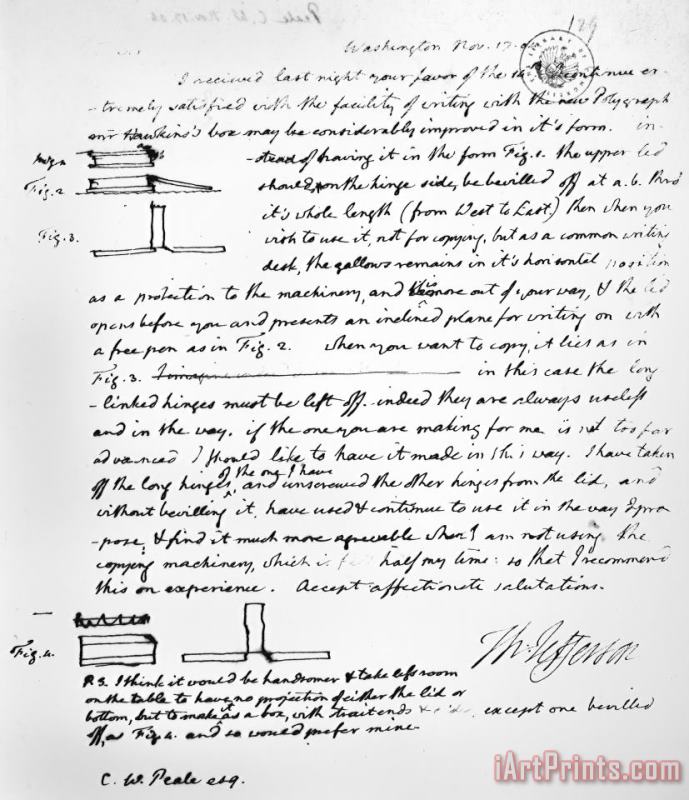 Peale C. W. Nov. 17. 06
129
LIBRARY OF
Washington Nov. 17.
I recieved last night your favor of the & continue ex-
-tremely satisfied with the facility of writing with the new Polygraph
mr Hawkins's box may be considerably improved in it's form. in-
-stead of having it in the form Fig. 1. the upper lid
Fig. 2 should, on the hinge side, be bevilled off at a.b. thro'
it's whole length (from West to East.) then when you
Fig. 3. wish to use it, not for copying, but as a common writing
desk, the gallows remains in it's horisontal position
as a protection to the machinery, and is more out of your way, & the lid
opens before you and presents an inclined plane for writing on with
a free pen as in Fig. 2. when you want to copy, it lies as in
Fig. 3. in this case the long
-linked hinges must be left off. indeed they are always useless
and in the way. if the one you are making for me is not too far
advanced I should like to have it made in this way. I have taken
off the long hinges of the one I have, and unscrewed the other hinges from the lid, and
without bevilling it, have used & continue to use it in the way I pro
-pose, & find it much more agreeable when I am not using the
copying machinery, which is full half my time: so that I recommend
this on experience. Accept affectionate salutations.
Fig. 4.
Th: Jefferson
P.S. I think it would be handsomer & take less room
on the table to have no projection of either the lid or
bottom, but to make it as a box, with strait ends & sides, except one bevilled
off, as Fig. 4. and so would prefer mine.
C. W. Peale esq.
iArtPrints.com